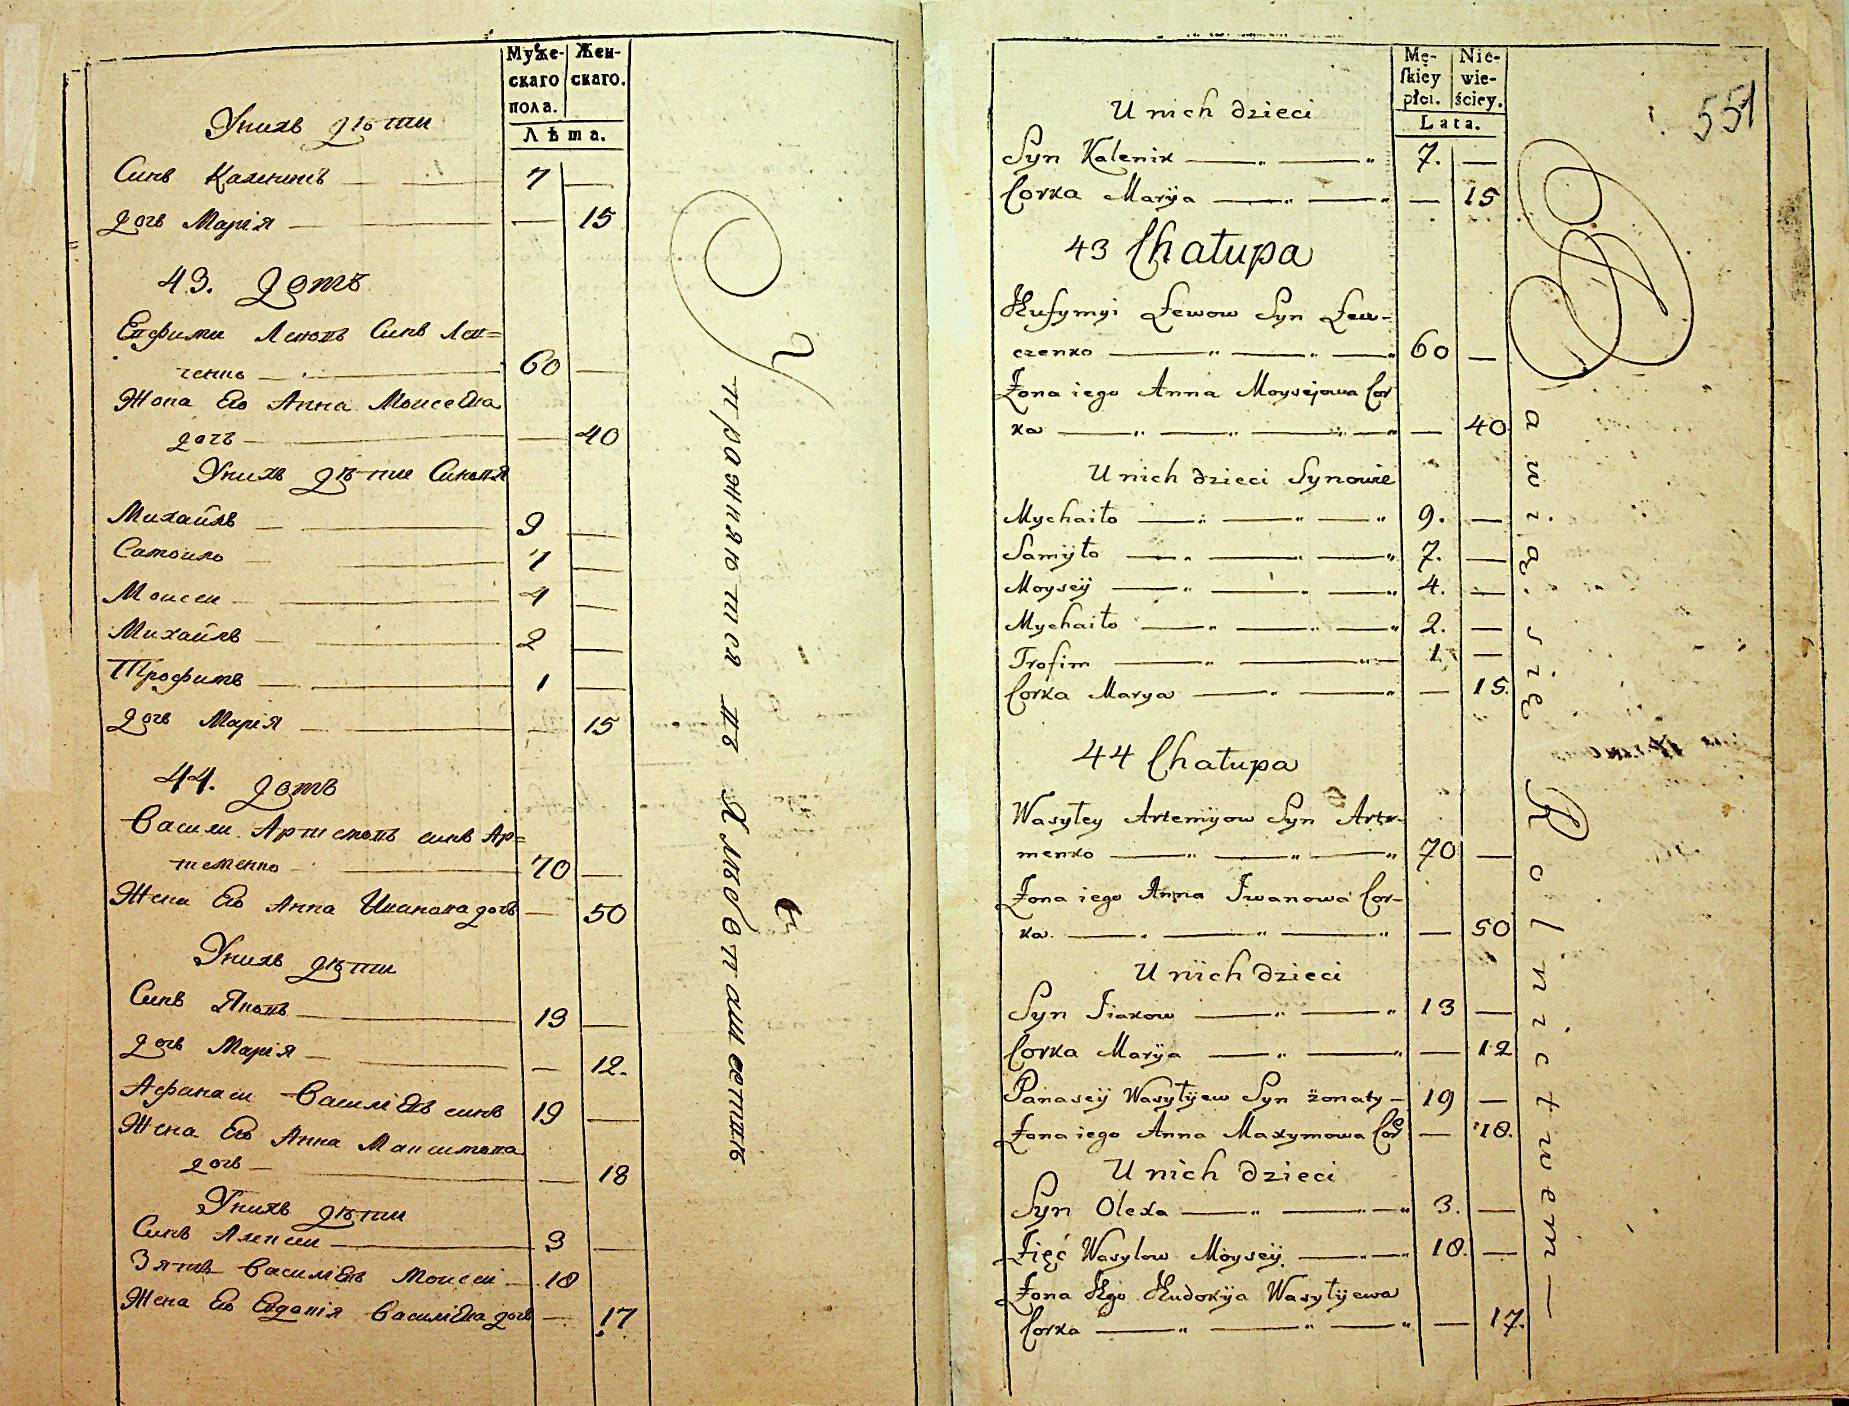 Муже-
скаго
пола.
Жен-
скаго.
Лѣта.
Унихъ дѣти
Синъ Каленикъ 7 —
дочь Марія — 15
43. домъ
Евфими Левовъ Синъ Лев=
ченко 60 —
Жона Его Анна Моисеева
дочь — 40
Унихъ дѣти Синовя
Михайлъ 9 —
Самоило 7 —
Моисеи 4 —
Михайлъ 2 —
Трофимъ 1 —
дочь Марія — 15
44. домъ
Васили Артемовъ синъ Ар=
теменко 70 —
Жена Его Анна Иванова дочь — 50
Унихъ дѣти
Синъ Яковъ 13 —
дочь Марія — 12.
Афанаси Василіевъ синъ 19 —
Жена Его Анна Максимова
дочь — 18
Унихъ дѣти
Синъ Алексеи 3 —
Зять Василіевъ Моисей 18
Жена Его Евдокія Василіева дочь — 17
Упражняются въ Хлѣбопашествѣ
551
Mę-
skiey
płci.
Nie-
wie-
ściey.
Lata.
U nich dzieci
Syn Kalenik 7. —
Corka Maryja — 15
43 Chałupa
Eufymyi Lewow Syn Lew-
czenko 60 —
Żona iego Anna Moysejowa Cor
ka — 40
U nich dzieci Synowie
Mychaiło 9. —
Samyło 7. —
Moysey 4. —
Mychaiło 2. —
Trofim 1 —
Corka Marya — 15.
44 Chałupa
Wasyley Artemyow Syn Arte-
menko 70 —
Żona iego Anna Iwanowa Cor-
ka — 50
U nich dzieci
Syn Iiakow 13 —
Corka Maryja — 12
Panasey Wasylyiew Syn żonaty 19 —
Żona iego Anna Maxymowa Cor — 18.
U nich dzieci
Syn Olexa 3. —
Zięć Wasylow Moysey 18. —
Żona Ego Eudokya Wasylyiewa
Corka — 17.
Bawią się Rolnictwem —